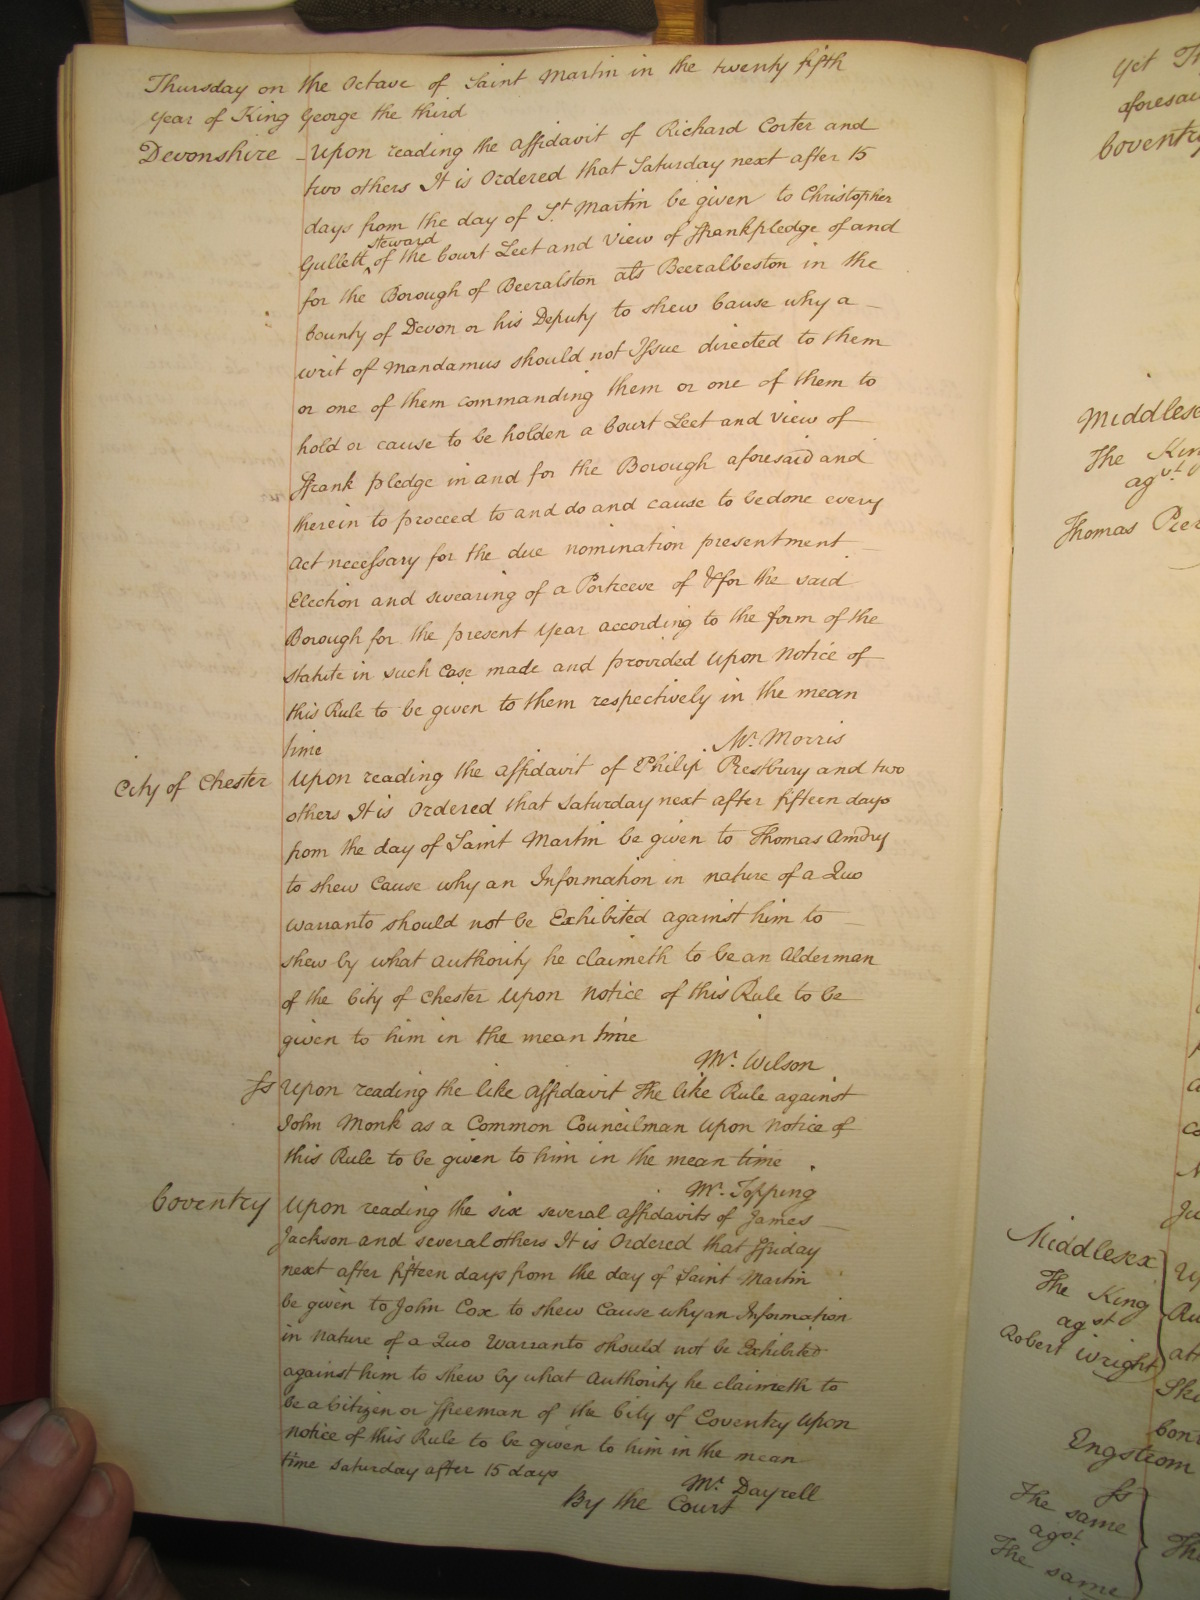 Thursday on the Octave of Saint Martin in the twenty fifth
Year of King George the third
Devonshire - Upon reading the affidavit of Richard Corter and
two others It is Ordered that Saturday next after 15
days from the day of St Martin be given to Christopher
steward
Gullett ^ of the Court Leet and View of Frankpledge of and
for the Borough of Beeralston als Beeralbeston in the
County of Devon or his Deputy to shew Cause why a
writ of Mandamus should not Issue directed to them
or one of them commanding them or one of them to
hold or cause to be holden a Court Leet and View of
Frank pledge in and for the Borough aforesaid and
therein to proceed to and do and cause to be done every
Act necessary for the due nomination presentment
Election and swearing of a Portreeve of & for the said
Borough for the present Year according to the form of the
Statute in such Case made and provided Upon Notice of
this Rule to be given to them respectively in the mean
time
Mr. Morris
City of Chester Upon reading the affidavit of Philip Prestbury and two
others It is Ordered that Saturday next after fifteen days
from the day of Saint Martin be given to Thomas Amery
to shew Cause why an Information in nature of a Quo
Warranto should not be Exhibited against him to
shew by what Authority he claimeth to be an Alderman
of the City of Chester Upon Notice of this Rule to be
given to him in the mean time
Mr. Wilson
Ss Upon reading the like Affidavit The like Rule against
John Monk as a Common Councilman Upon Notice of
this Rule to be given to him in the mean time
Mr. Topping
Coventry Upon reading the six several affidavits of James
Jackson and several others It is Ordered that Friday
next after fifteen days from the day of Saint Martin
be given to John Cox to shew Cause why an Information
in Nature of a Quo Warranto should not be Exhibited
against him to shew by what Authority he claimeth to
be a Citizen or Freeman of the City of Coventry Upon
notice of this Rule to be given to him in the mean
time Saturday after 15 days
Mr. Dayrell
By the Court
Yet
aforesai
Coventry
Middlese
The Kin
agst
Thomas Pier
Middlesex
The King
agst
Robert Wright
Engstrom
Ss
The same
agst
The same